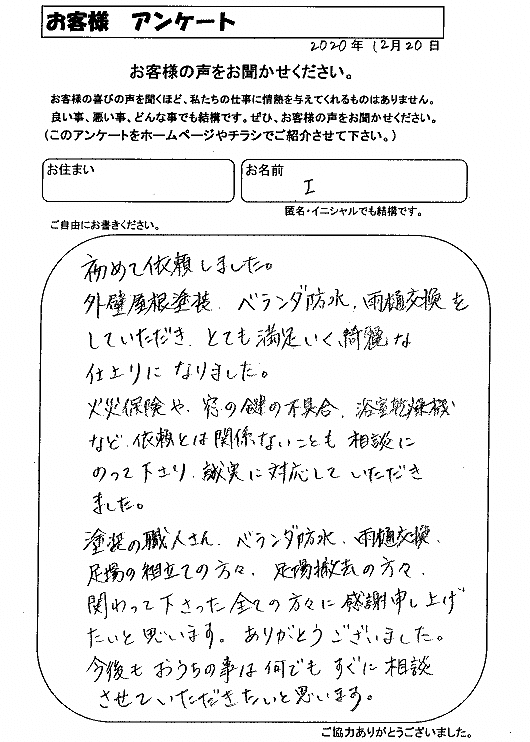 お客様 アンケート
2020年 12月20日
お客様の声をお聞かせください。
お客様の喜びの声を聞くほど、私たちの仕事に情熱を与えてくれるものはありません。
良い事、悪い事、どんな事でも結構です。ぜひ、お客様の声をお聞かせください。
(このアンケートをホームページやチラシでご紹介させて下さい。)
お住まい
お名前
I
匿名・イニシャルでも結構です。
ご自由にお書きください。
初めて依頼しました。
外壁屋根塗装、ベランダ防水、雨樋交換を
していただき、とても満足いく、綺麗な
仕上りになりました。
火災保険や、窓の鍵の不具合、浴室乾燥機
など、依頼とは関係ないことも相談に
のって下さり、誠実に対応していただき
ました。
塗装の職人さん、ベランダ防水、雨樋交換、
足場の組立ての方々、足場撤去の方々、
関わって下さった全ての方々に感謝申し上げ
たいと思います。ありがとうございました。
今後もおうちの事は何でもすぐに相談
させていただきたいと思います。
ご協力ありがとうございました。